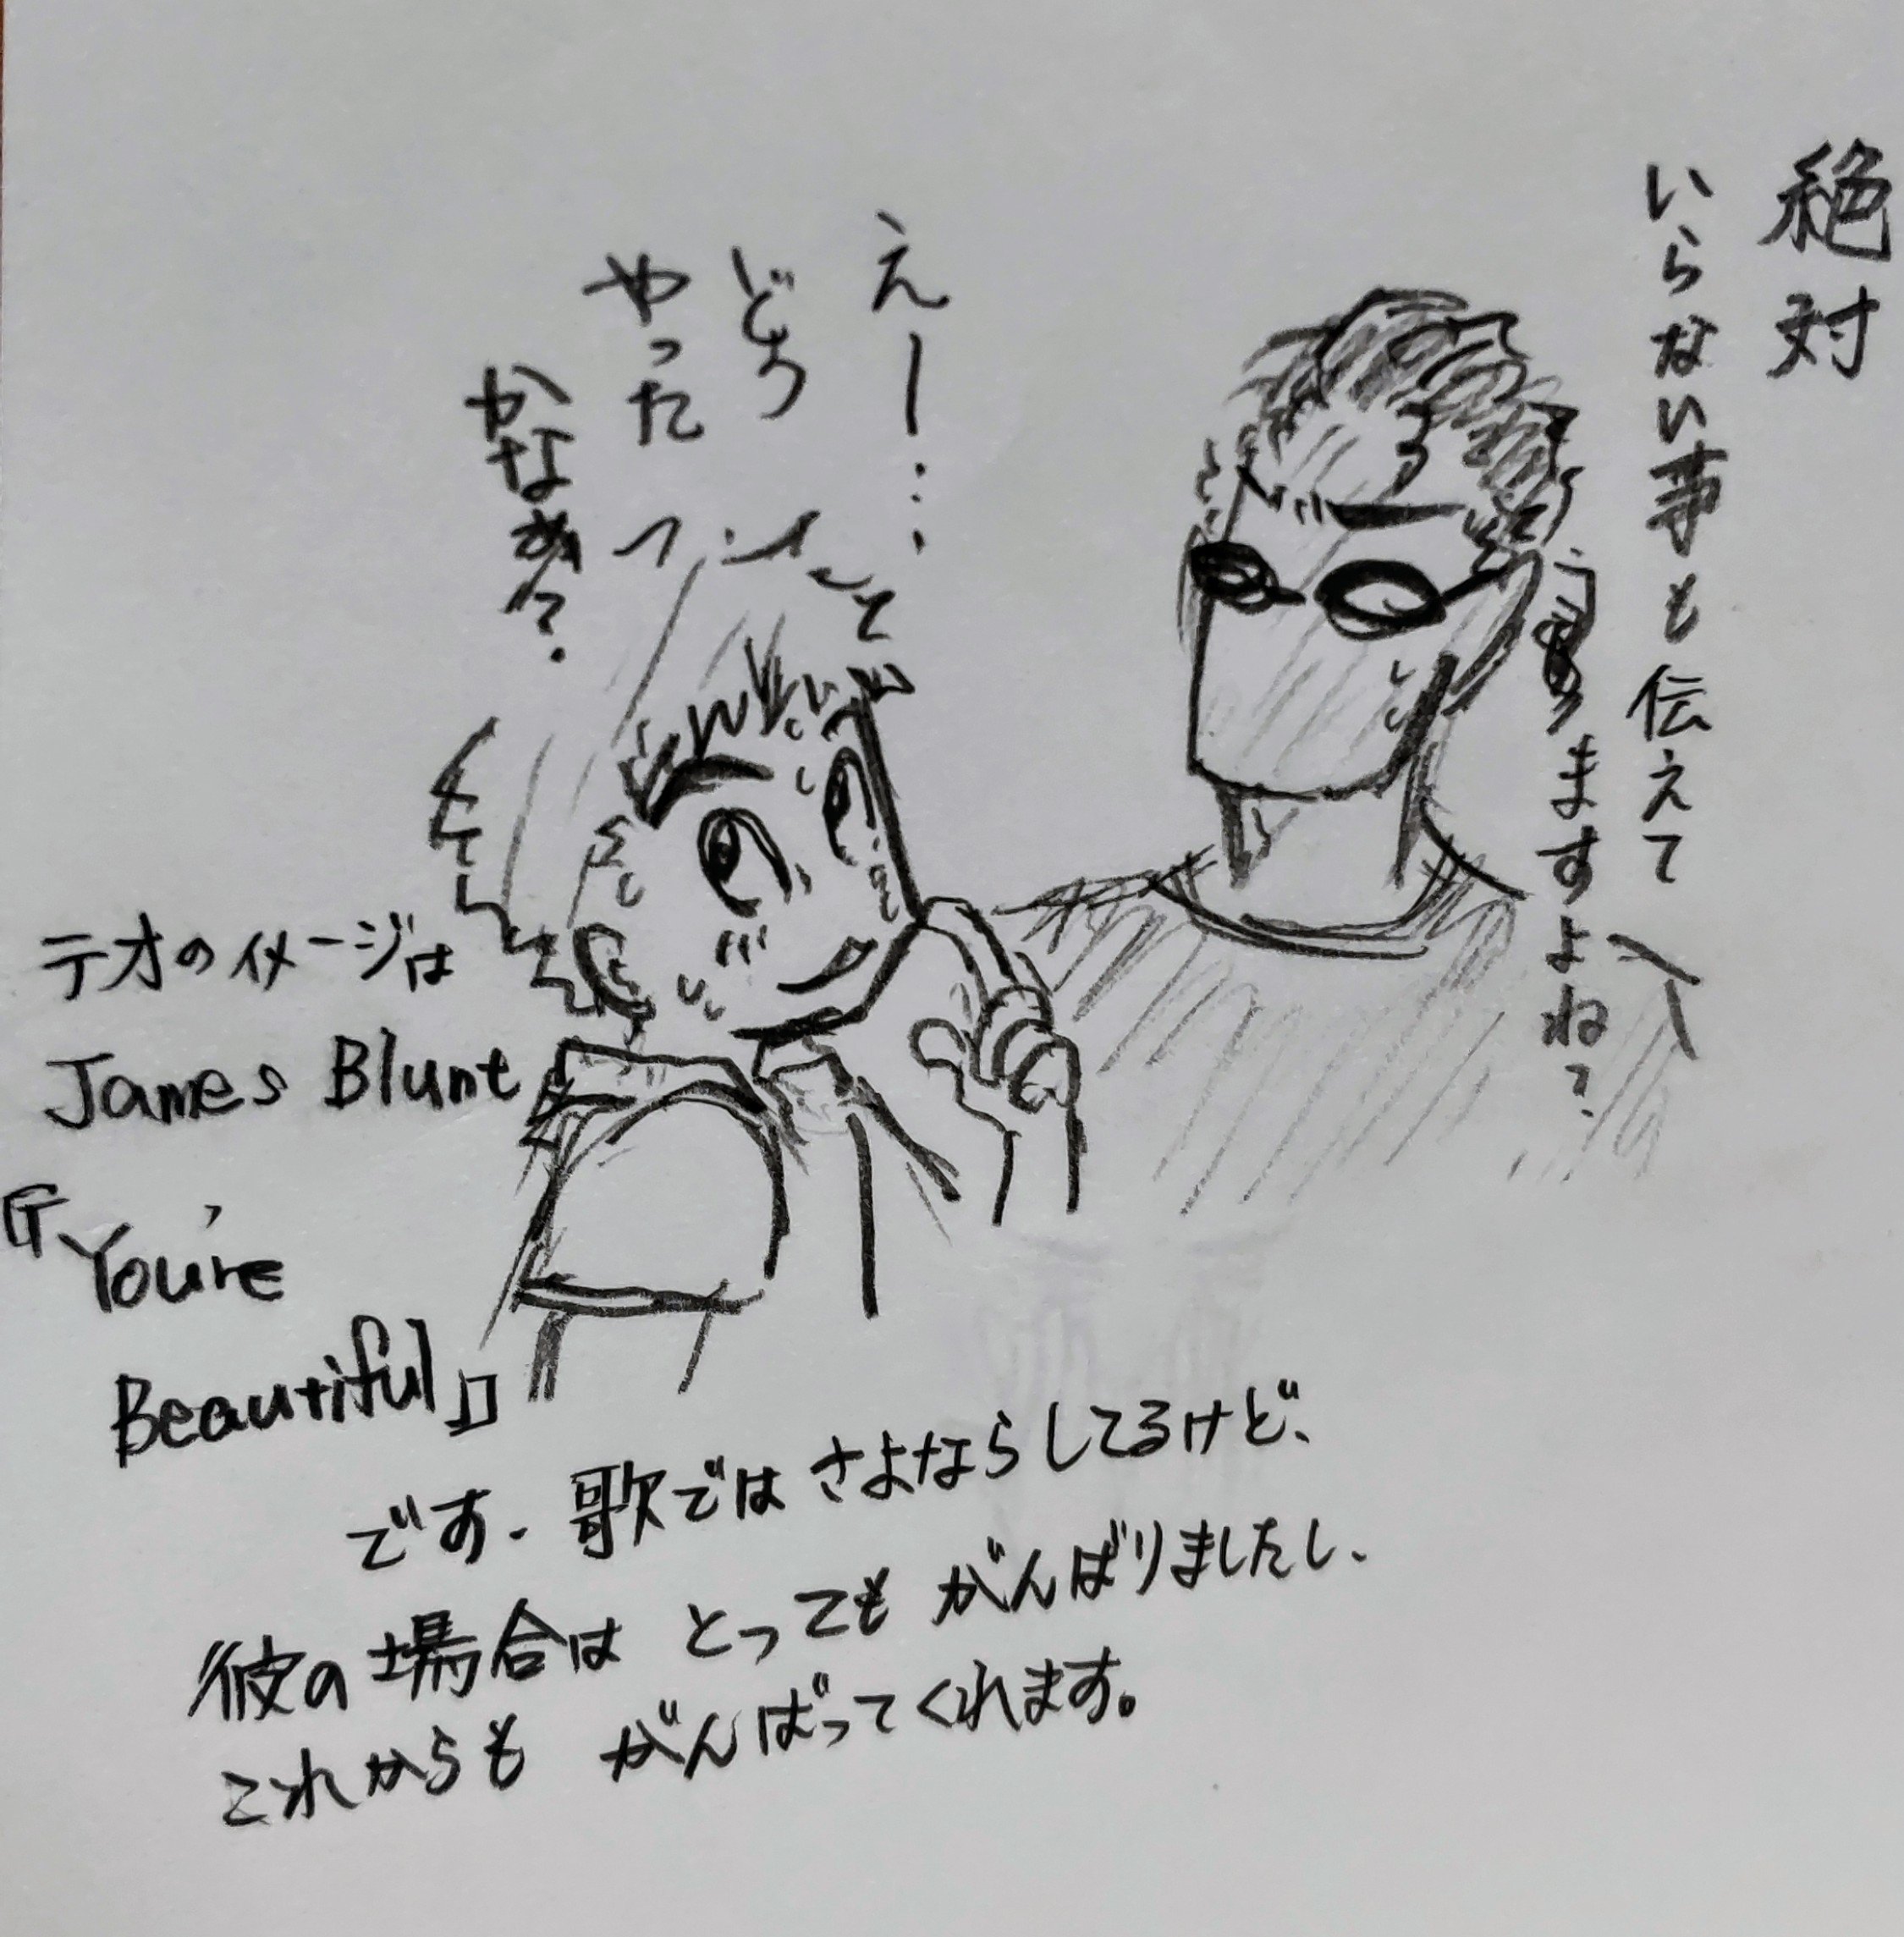 絶対
いらない事も伝えて
ますよね?
えー…
どう
やった
かなぁ?
テオのイメージは
James Blunt
『You're
Beautiful』
です。歌ではさよならしてるけど、
彼の場合はとってもがんばりましたし、
これからもがんばってくれます。